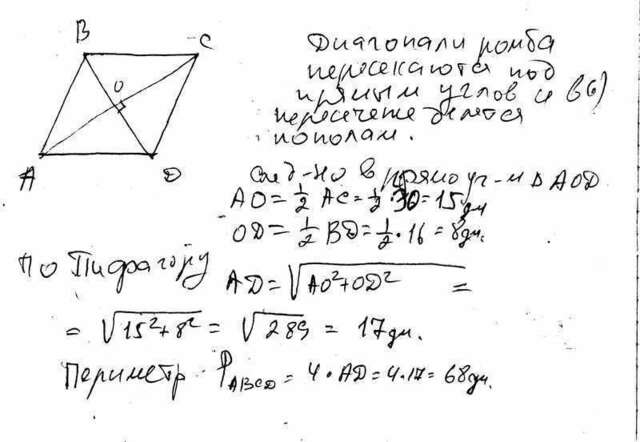 B
C
O
A
D
Диагонали ромба
пересекаются под
прямым углом и в
пересечение делятся
пополам.
след-но в прямоуг-м Δ AOD
AO = 1/2 AC = 1/2 · 30 = 15 дм
OD = 1/2 BD = 1/2 · 16 = 8 дм.
по Пифагору AD = √AO²+OD² =
= √15²+8² = √289 = 17 дм.
Периметр P ABCD = 4 · AD = 4·17 = 68 дм.